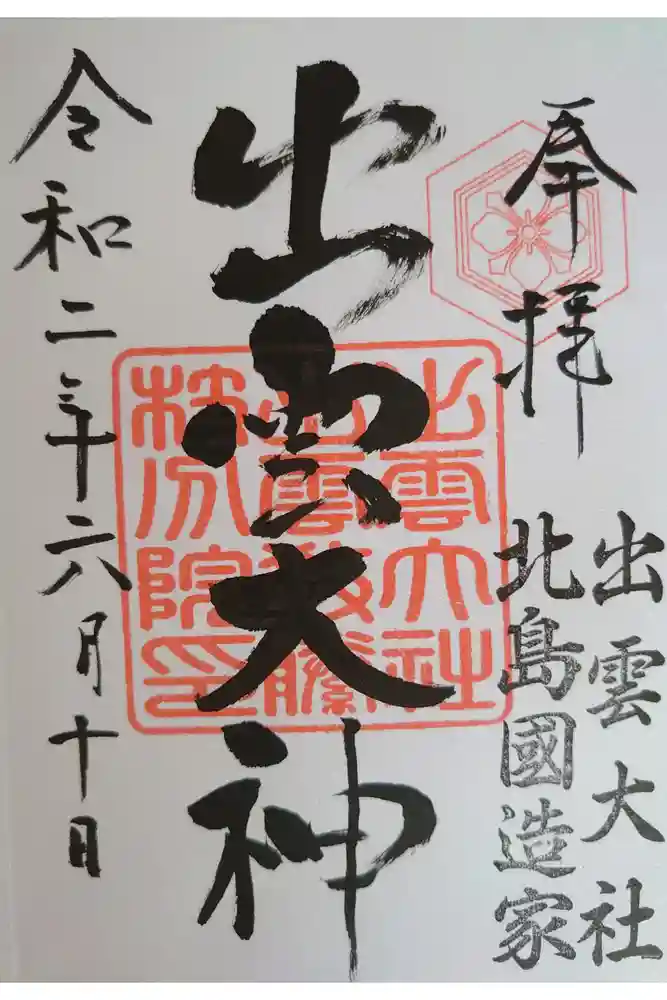 奉拝
出雲大社
北島國造家
出雲大神
出雲大社
分院印
令和二年六月十日